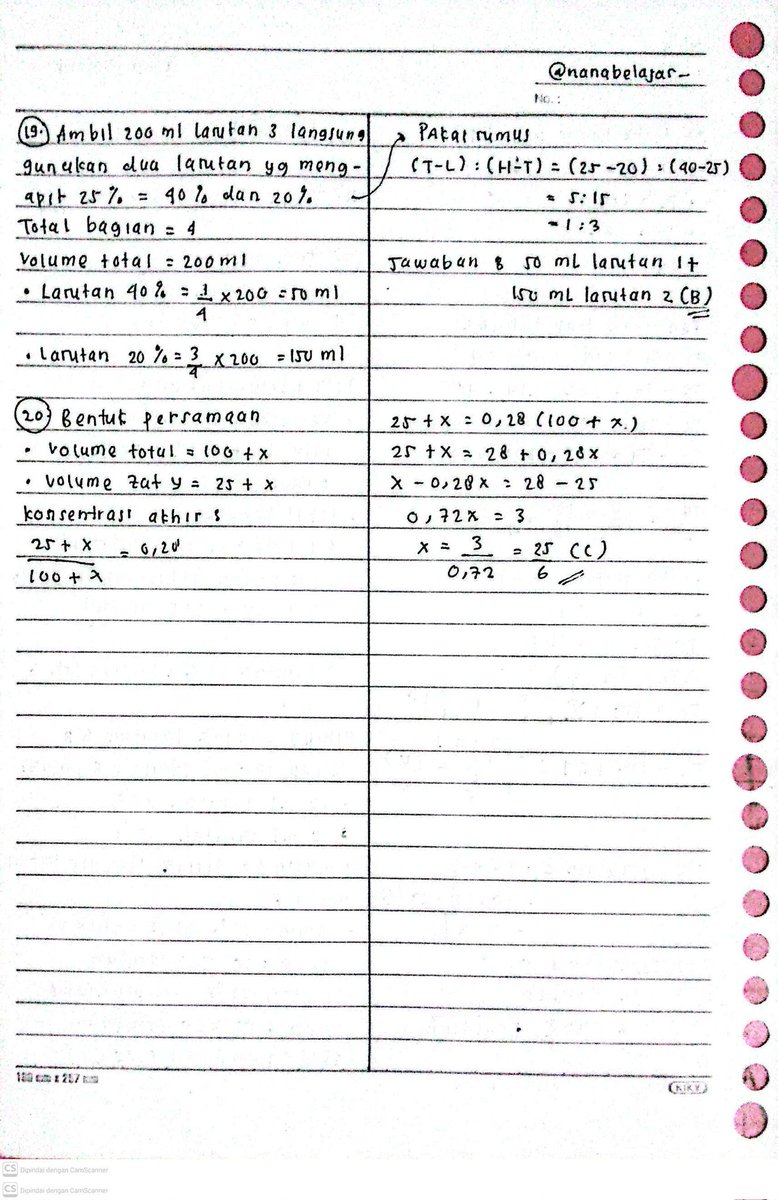 @nanabelajar_
No.:
19. Ambil 200 ml larutan 3 langsung
gunakan dua larutan yg meng-
apit 25% = 40% dan 20%
Total bagian = 4
Volume total = 200 ml
• Larutan 40% = 1/4 x 200 = 50 ml
• larutan 20% = 3/4 x 200 = 150 ml
Pakai rumus
(T-L) : (H-T) = (25-20) : (40-25)
= 5:15
= 1:3
Jawaban : 50 mL larutan 1 +
150 mL larutan 2 (B)
20. Bentuk persamaan
• Volume total = 100 + x
• Volume zat y = 25 + x
konsentrasi akhir :
25 + x / 100 + x = 0,28
25 + x = 0,28 (100 + x)
25 + x = 28 + 0,28x
x - 0,28x = 28 - 25
0,72x = 3
x = 3/0,72 = 25/6 (C)
180 mm x 257 mm
KIKY
CS Dipindai dengan CamScanner
CS Dipindai dengan CamScanner